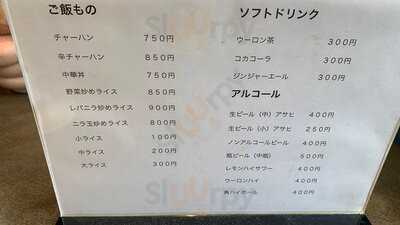 ご飯もの
チャーハン 750円
辛チャーハン 850円
中華丼 750円
野菜炒めライス 850円
レバニラ炒めライス 900円
ニラ玉炒めライス 800円
小ライス 100円
中ライス 200円
大ライス 300円
ソフトドリンク
ウーロン茶 300円
コカコーラ 300円
ジンジャーエール 300円
アルコール
生ビール（中）アサヒ 400円
生ビール（小）アサヒ 250円
ノンアルコールビール 400円
瓶ビール（中瓶） 500円
レモンハイサワー 400円
ウーロンハイ 400円
角ハイボール 400円